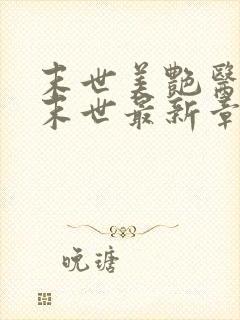 末世美艷醫
末世最新章
晚瑭